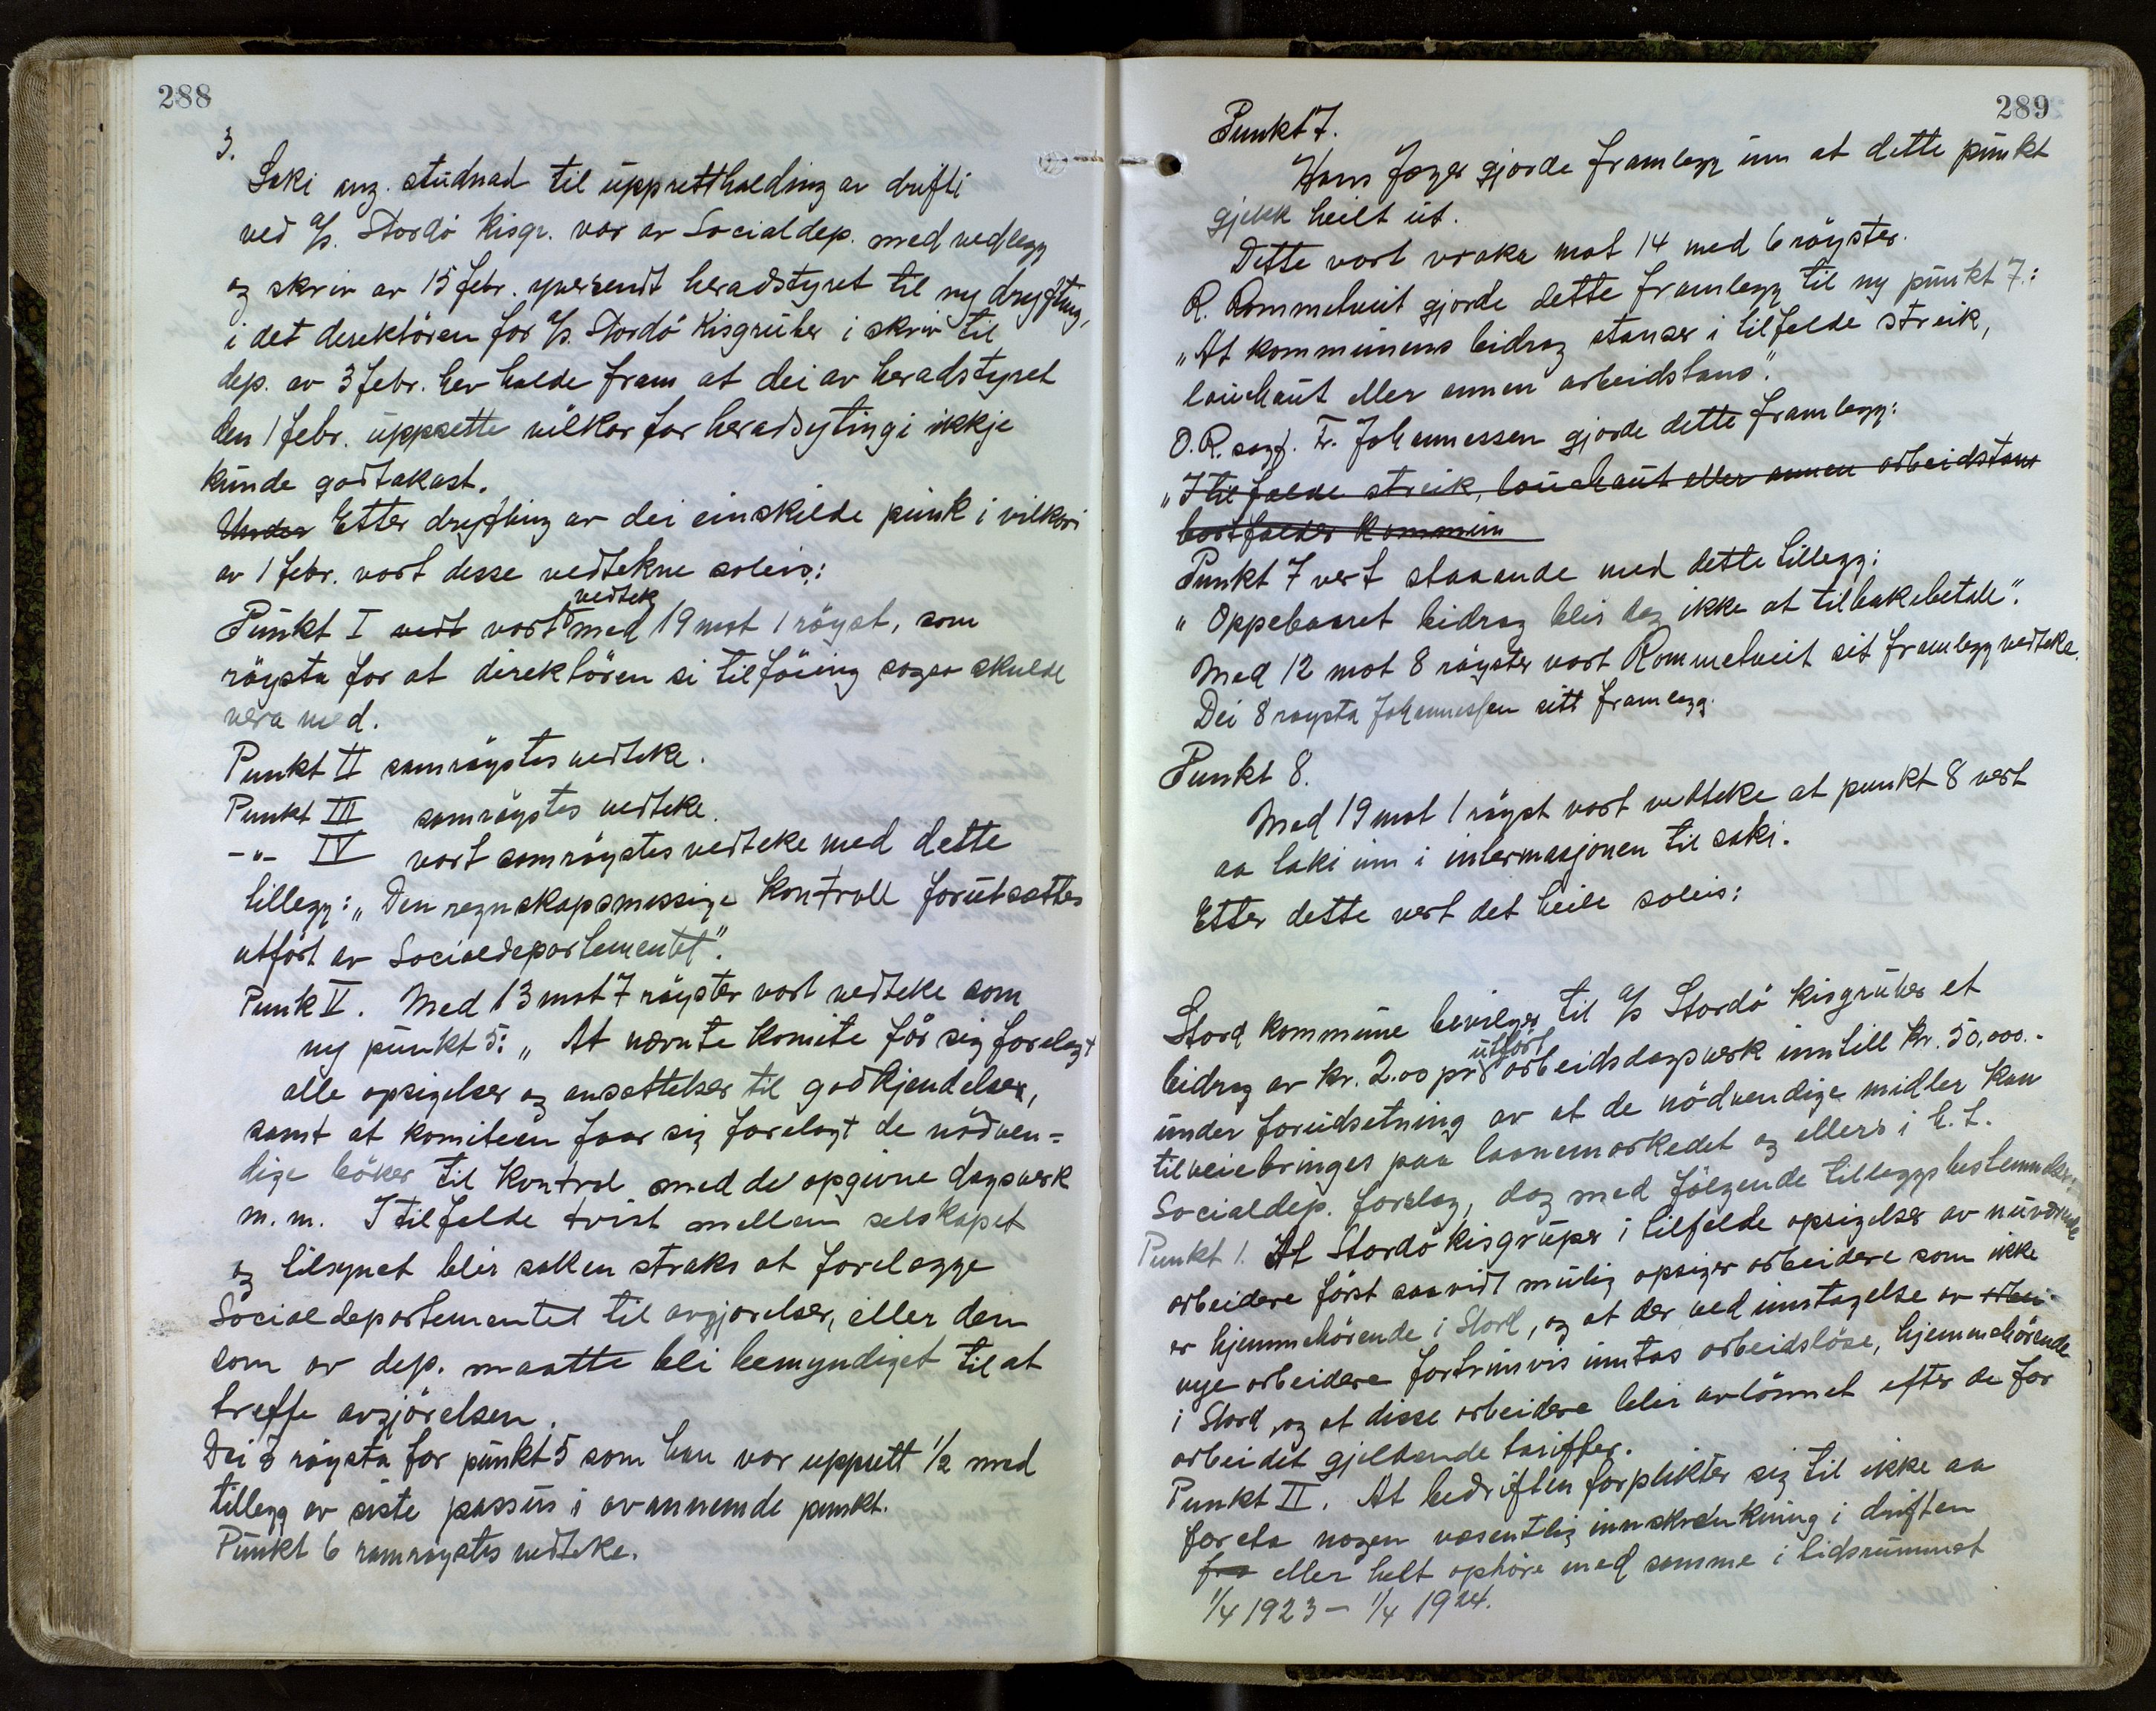 288
3.
Saki ang. studnad til upprettholding av drifti
ved A/S. Stordö Kisgr. var av Socialdep. med vedlegg
og skriv av 15 febr. yversendt heradstyret til ny dryfting,
i det direktören for A/S. Stordö Kisgruber i skriv til
dep. av 3 febr. hev halde fram at dei av heradstyret
den 1 febr. uppsette vilkor for heradsytingi ikkje
kunde godtakast.
Under Etter dryfting av dei einskilde punk i vilkori
av 1 febr. vart desse vedtekne soleis:
Punkt I vedt vart vedtek med 19 mot 1 röyst, som
röysta for at direktören si tilföiing sogso skulde
vera med.
Punkt II samröystes vedteke.
Punkt III samröystes vedteke.
-"- IV vart samröystes vedteke med dette
tillegg: "Den regnskapsmessige kontroll forutsættes
utfört av Socialdepartementet".
Punk V. Med 13 mot 7 röyster vart vedteke som
ny punkt 5: "At nævnte komite får sig forelagt
alle opsigelser og ansættelser til godkjendelse,
samt at komiteen faar sig forelagt de nödven=
dige böker til kontrol med de opgivne dagsverk
m.m. I tilfelde tvist mellem selskapet
og tilsynet blir saken straks at forelægge
Socialdepartementet til avgjörelse, eller den
som av dep. maatte bli bemyndiget til at
treffe avgjörelsen.
Dei 7 röysta for punkt 5 som han var uppsett 1/2 med
tillegg av siste passus i ovannemde punkt.
Punkt 6 samröystes vedteke.
289
Punkt 7.
Hans Jæger gjorde framlegg um at dette punkt
gjekk heilt ut.
Dette vart vraka mot 14 med 6 röyster.
R. Rommetveit gjorde dette framlegg til ny punkt 7.:
"At kommunens bidrag stanser i tilfelde streik,
louchaut eller annen arbeidstans".
O.R.sagf. Fr. Johannessen gjorde dette framlegg:
"I tilfælde streik, louchaut eller annen arbeidstans
bortfalder kommun
Punkt 7 vert staaande med dette tillegg:
"Oppebaaret bidrag blir dog ikke at tilbakebetale".
Med 12 mot 8 röyster vart Rommetveit sit framlegg vedteke.
Dei 8 röysta Johannessen sitt framlegg.
Punkt 8.
Med 19 mot 1 röyst vart vedteke at punkt 8 vert
aa taki inn i intermasjonen til saki.
Etter dette vert det heile soleis:
Stord kommune bevilger til A/S Stordö kisgruber et
bidrag av kr. 2.00 pr utfört arbeidsdagsverk inntill kr. 50,000.-
under forudsetning av at de nödvendige midler kan
tilveiebringes paa laanemarkedet og ellers i h. t.
Socialdep. forslag, dog med fölgende tilleggsbestemmelser:
Punkt 1. At Stordö kisgruper i tilfelde opsigelse av nuværende
arbeidere först saavidt mulig opsiger arbeidere som ikke
er hjemmehörende i Stord, og at der ved inntagelse av arbei
nye arbeidere fortrinsvis inntas arbeidslöse, hjemmehörende
i Stord, og at disse arbeidere blir avlönnet efter de for
arbeidet gjeldende tariffer.
Punkt II. At bedriften forplikter sig til ikke aa
foreta nogen væsentlig innskrænkning i driften
fra eller helt ophöre med samme i tidsrummet
1/4 1923 - 1/4 1924.